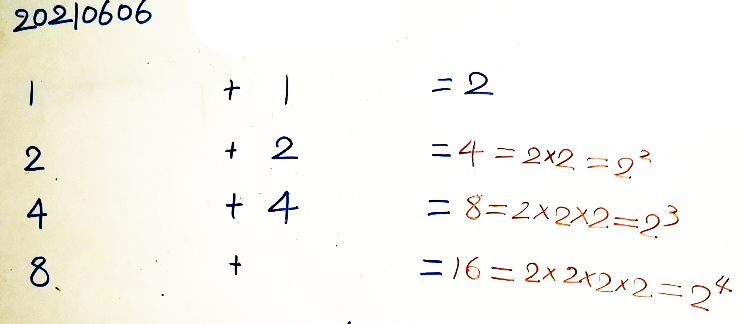 20210606
1 + 1 = 2
2 + 2 = 4 = 2×2 = 2²
4 + 4 = 8 = 2×2×2 = 2³
8 + = 16 = 2×2×2×2 = 2⁴